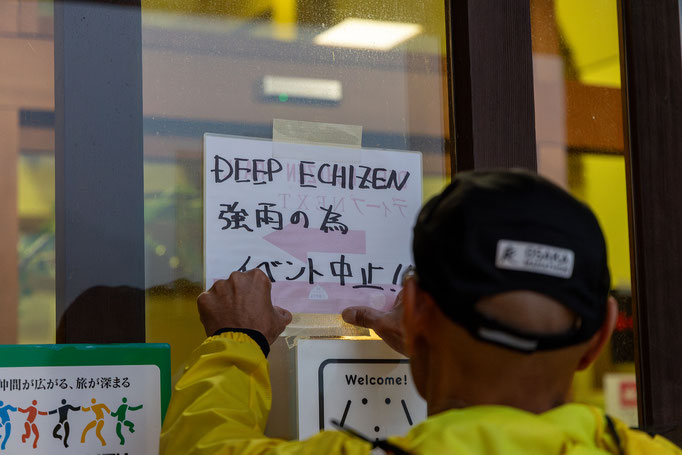 DEEP ECHIZEN
強雨の為
イベント中止!!
ディープNEXT
OSAKA
仲間が広がる、旅が深まる
Welcome!